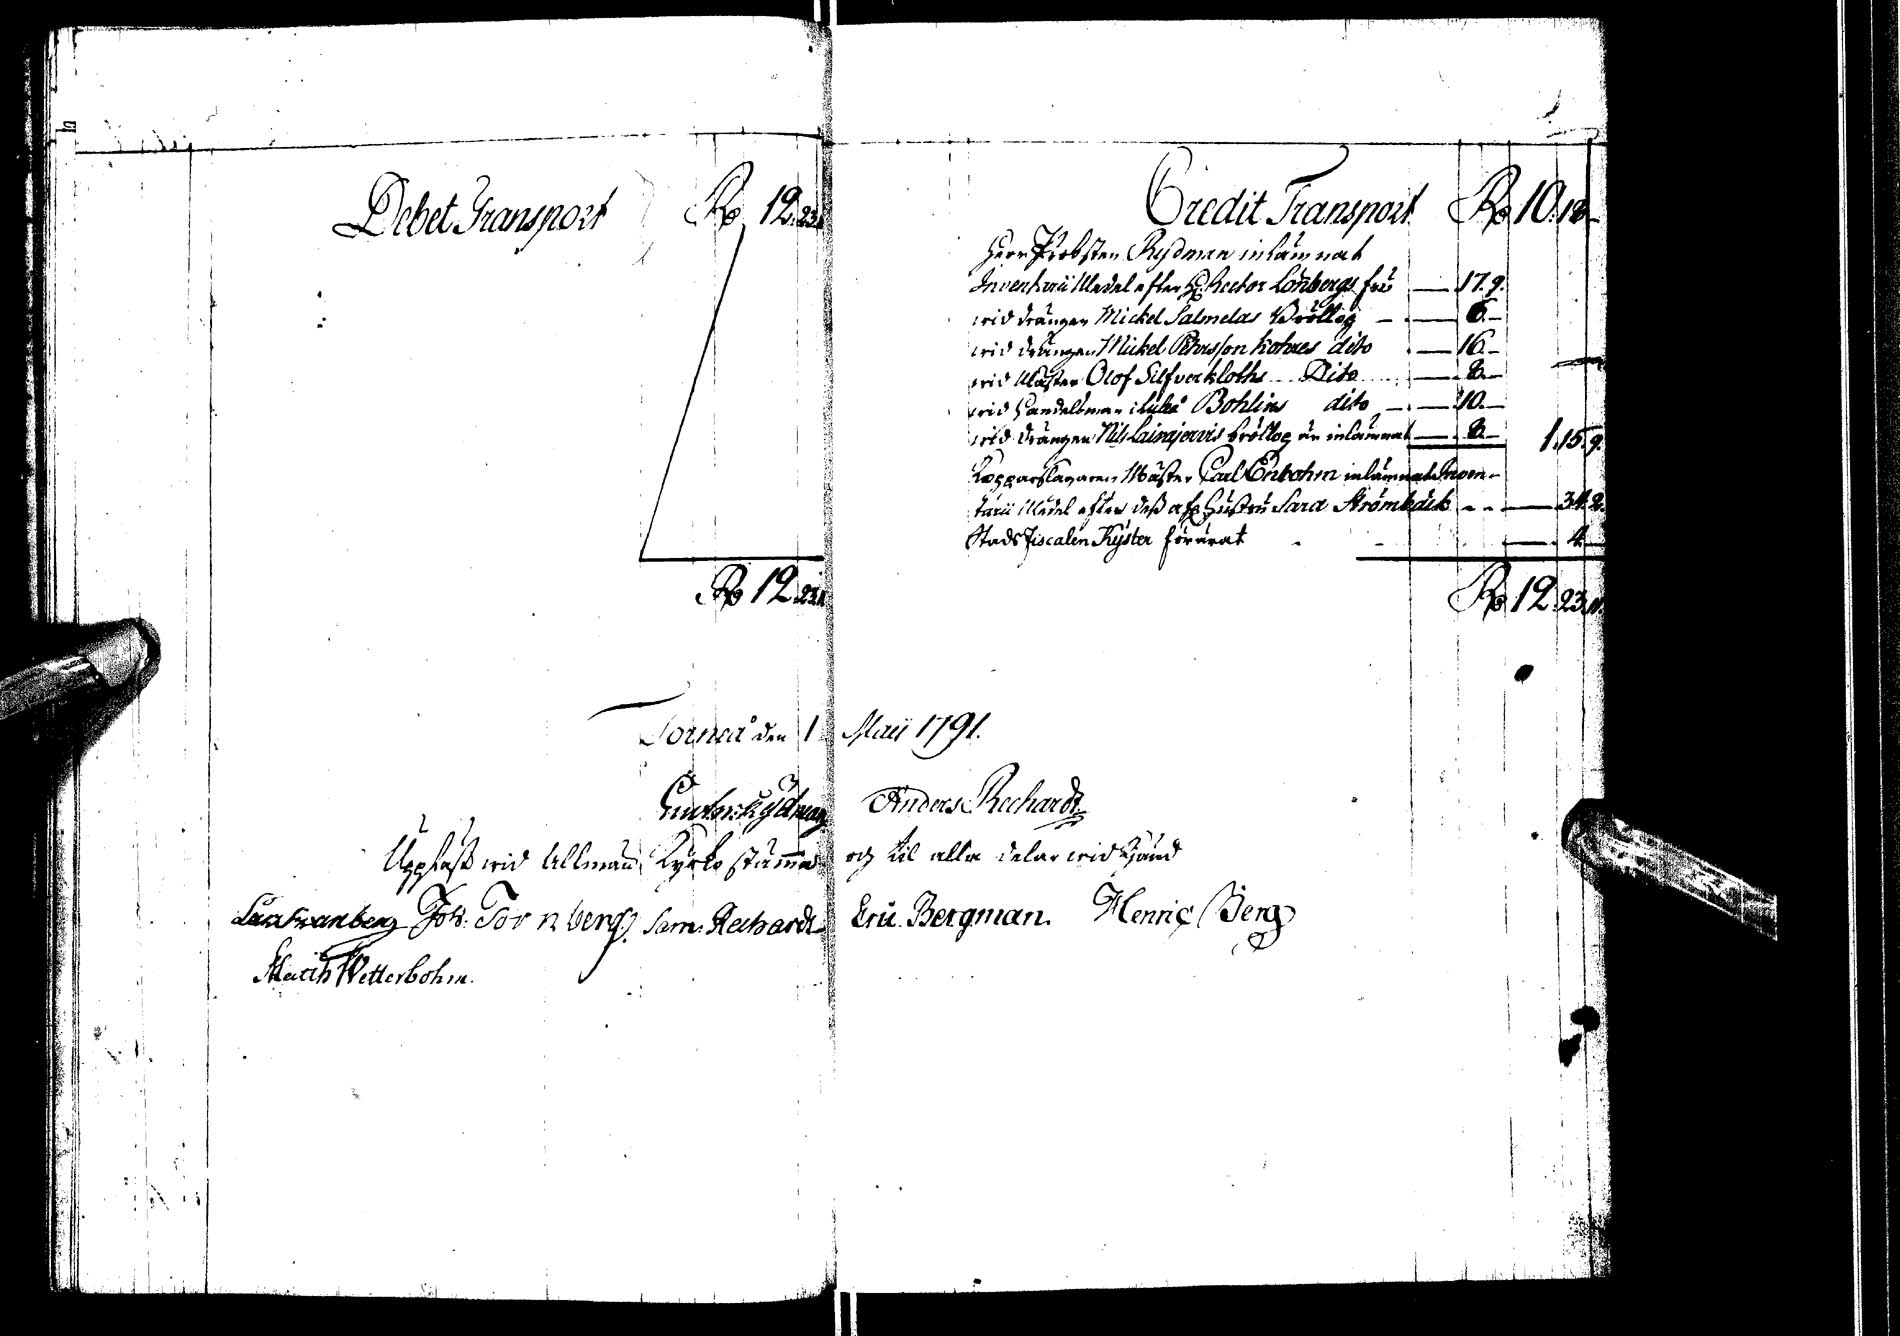 Debet Transport Rd 12.23.11
Rd 12.23.11
Credit Transport Rd 10.18.–
Herr Probsten Rydman inlämnat
Inventarii Medel efter H. Rector Lönbergs fru — 17.9.
wid drängen Mickel Salmelas Bröllop — 6.–
wid drängen Mickel Pehrsson Kohnes dito — 16.–
wid Mäster Olof Silfverkloths Dito — 8.–
wid Handelsman i Luleå Bohlins dito — 10.–
wid drängen Nils Lainijervis bröllop är inlämnat — 8.– 1.15.9.
Kopparslagaren Mäster Carl Enbohm inlämnat Inven-
tarii Medel efter dess afl. Hustru Sara Strömbäck — 34.2.
Stads Fiscalen Kyster förärat — 4.–
Rd 12.23.11.
Torneå den 1 Maij 1791.
Rydman Anders Rechardt
Uppläst wid Allmän Kyrko stämma och til alla delar widkänd
Joh. Tornberg. Sam. Rechardt Eric Bergman. Henric Berg
Matth Wetterbohm.